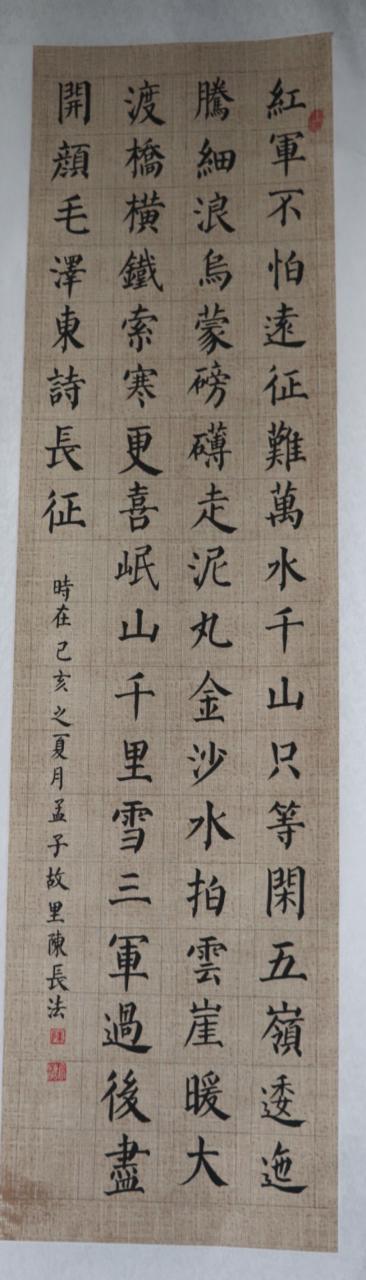 紅軍不怕遠征難萬水千山只等閑五嶺逶迤
騰細浪烏蒙磅礴走泥丸金沙水拍雲崖暖大
渡橋橫鐵索寒更喜岷山千里雪三軍過後盡
開顔毛澤東詩長征
時在己亥之夏月孟子故里陳長法